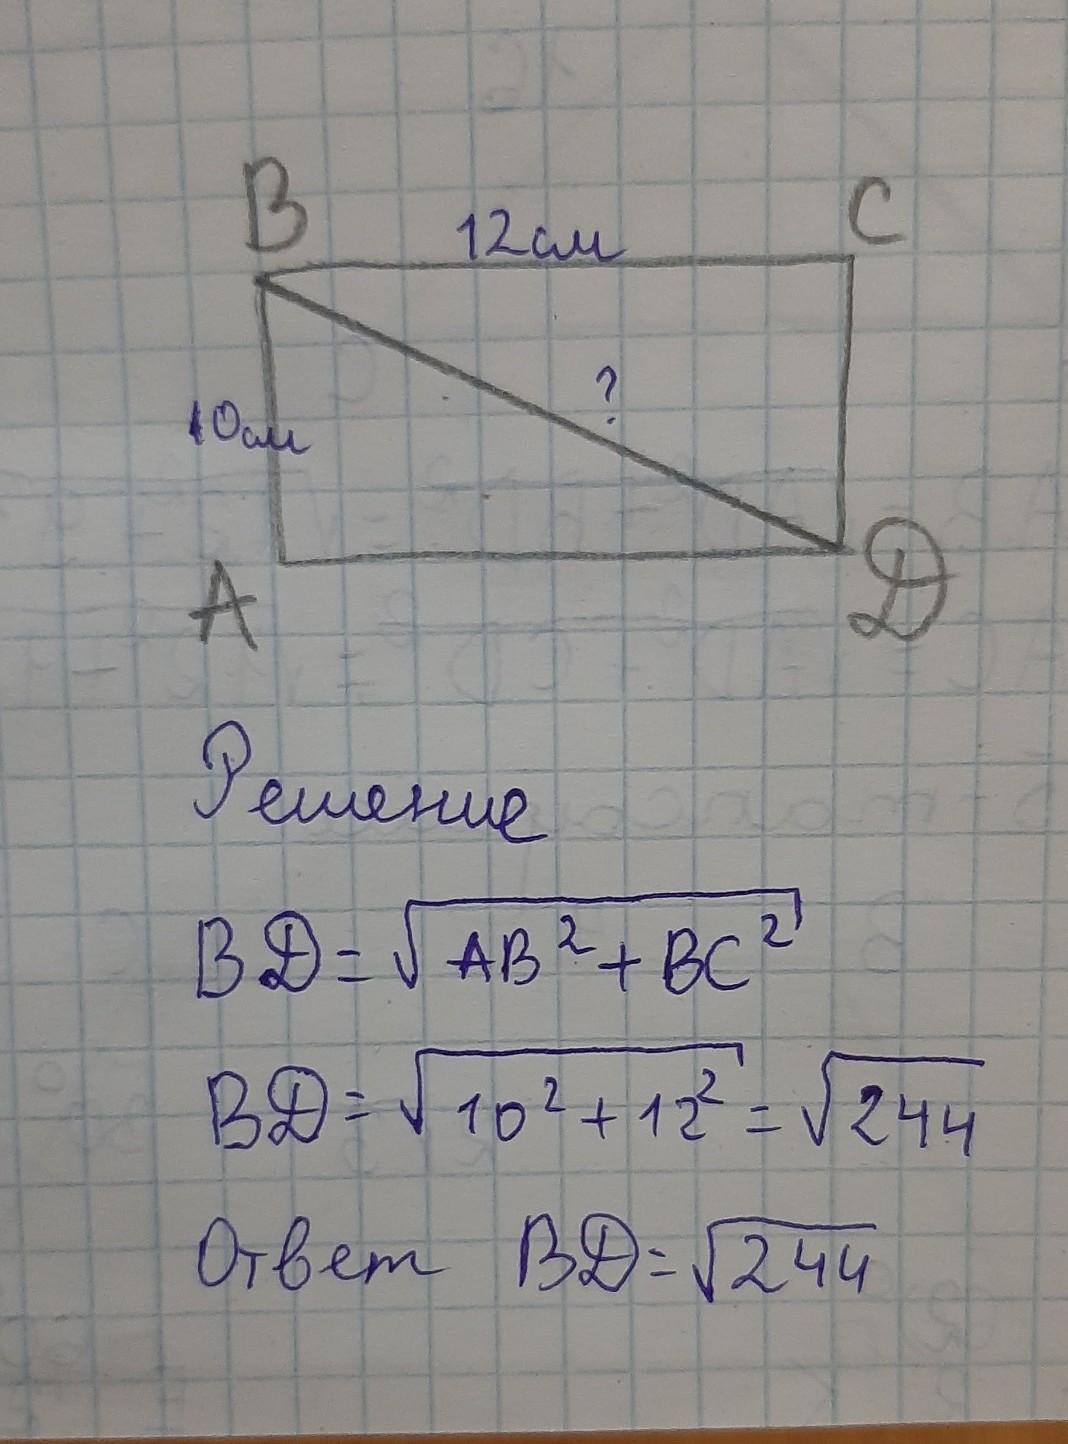 B C
12см
?
10см
A D
Решение
BD = √AB² + BC²
BD = √10² + 12² = √244
Ответ BD = √244